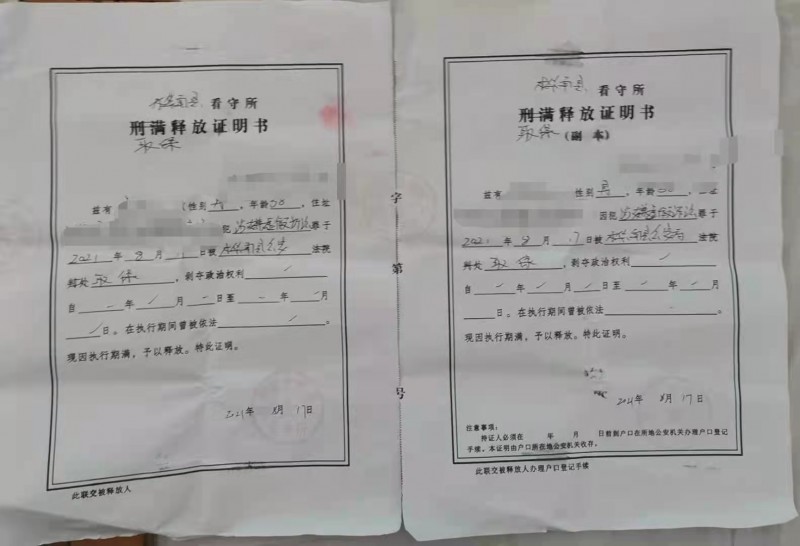 桦南县 看守所
刑满释放证明书
取保
兹有 性别 男，年龄20，住址
犯 妨害传染病防治罪于
2021年8月 日被桦南县公安 法院
判处 取保，剥夺政治权利 /
自 / 年 / 月 / 日至 / 年 / 月
/ 日。在执行期间曾被依法 /
现因执行期满，予以释放。特此证明。
2021年 8月 17日
此联交被释放人
字
第
号
桦南县 看守所
刑满释放证明书
取保 （副 本）
兹有 性别 男，年龄20，
因犯 罪于
2021年8月17日被桦南县公安局 法院
判处 取保，剥夺政治权利 /
自 / 年 / 月 / 日至 / 年 / 月
/ 日。在执行期间曾被依法 /
现因执行期满，予以释放。特此证明。
2021年 8月 17日
注意事项：
持证人必须在 年 月 日前到户口所在地公安机关办理户口登记
手续，本证明由户口所在地公安机关收存。
此联交被释放人办理户口登记手续